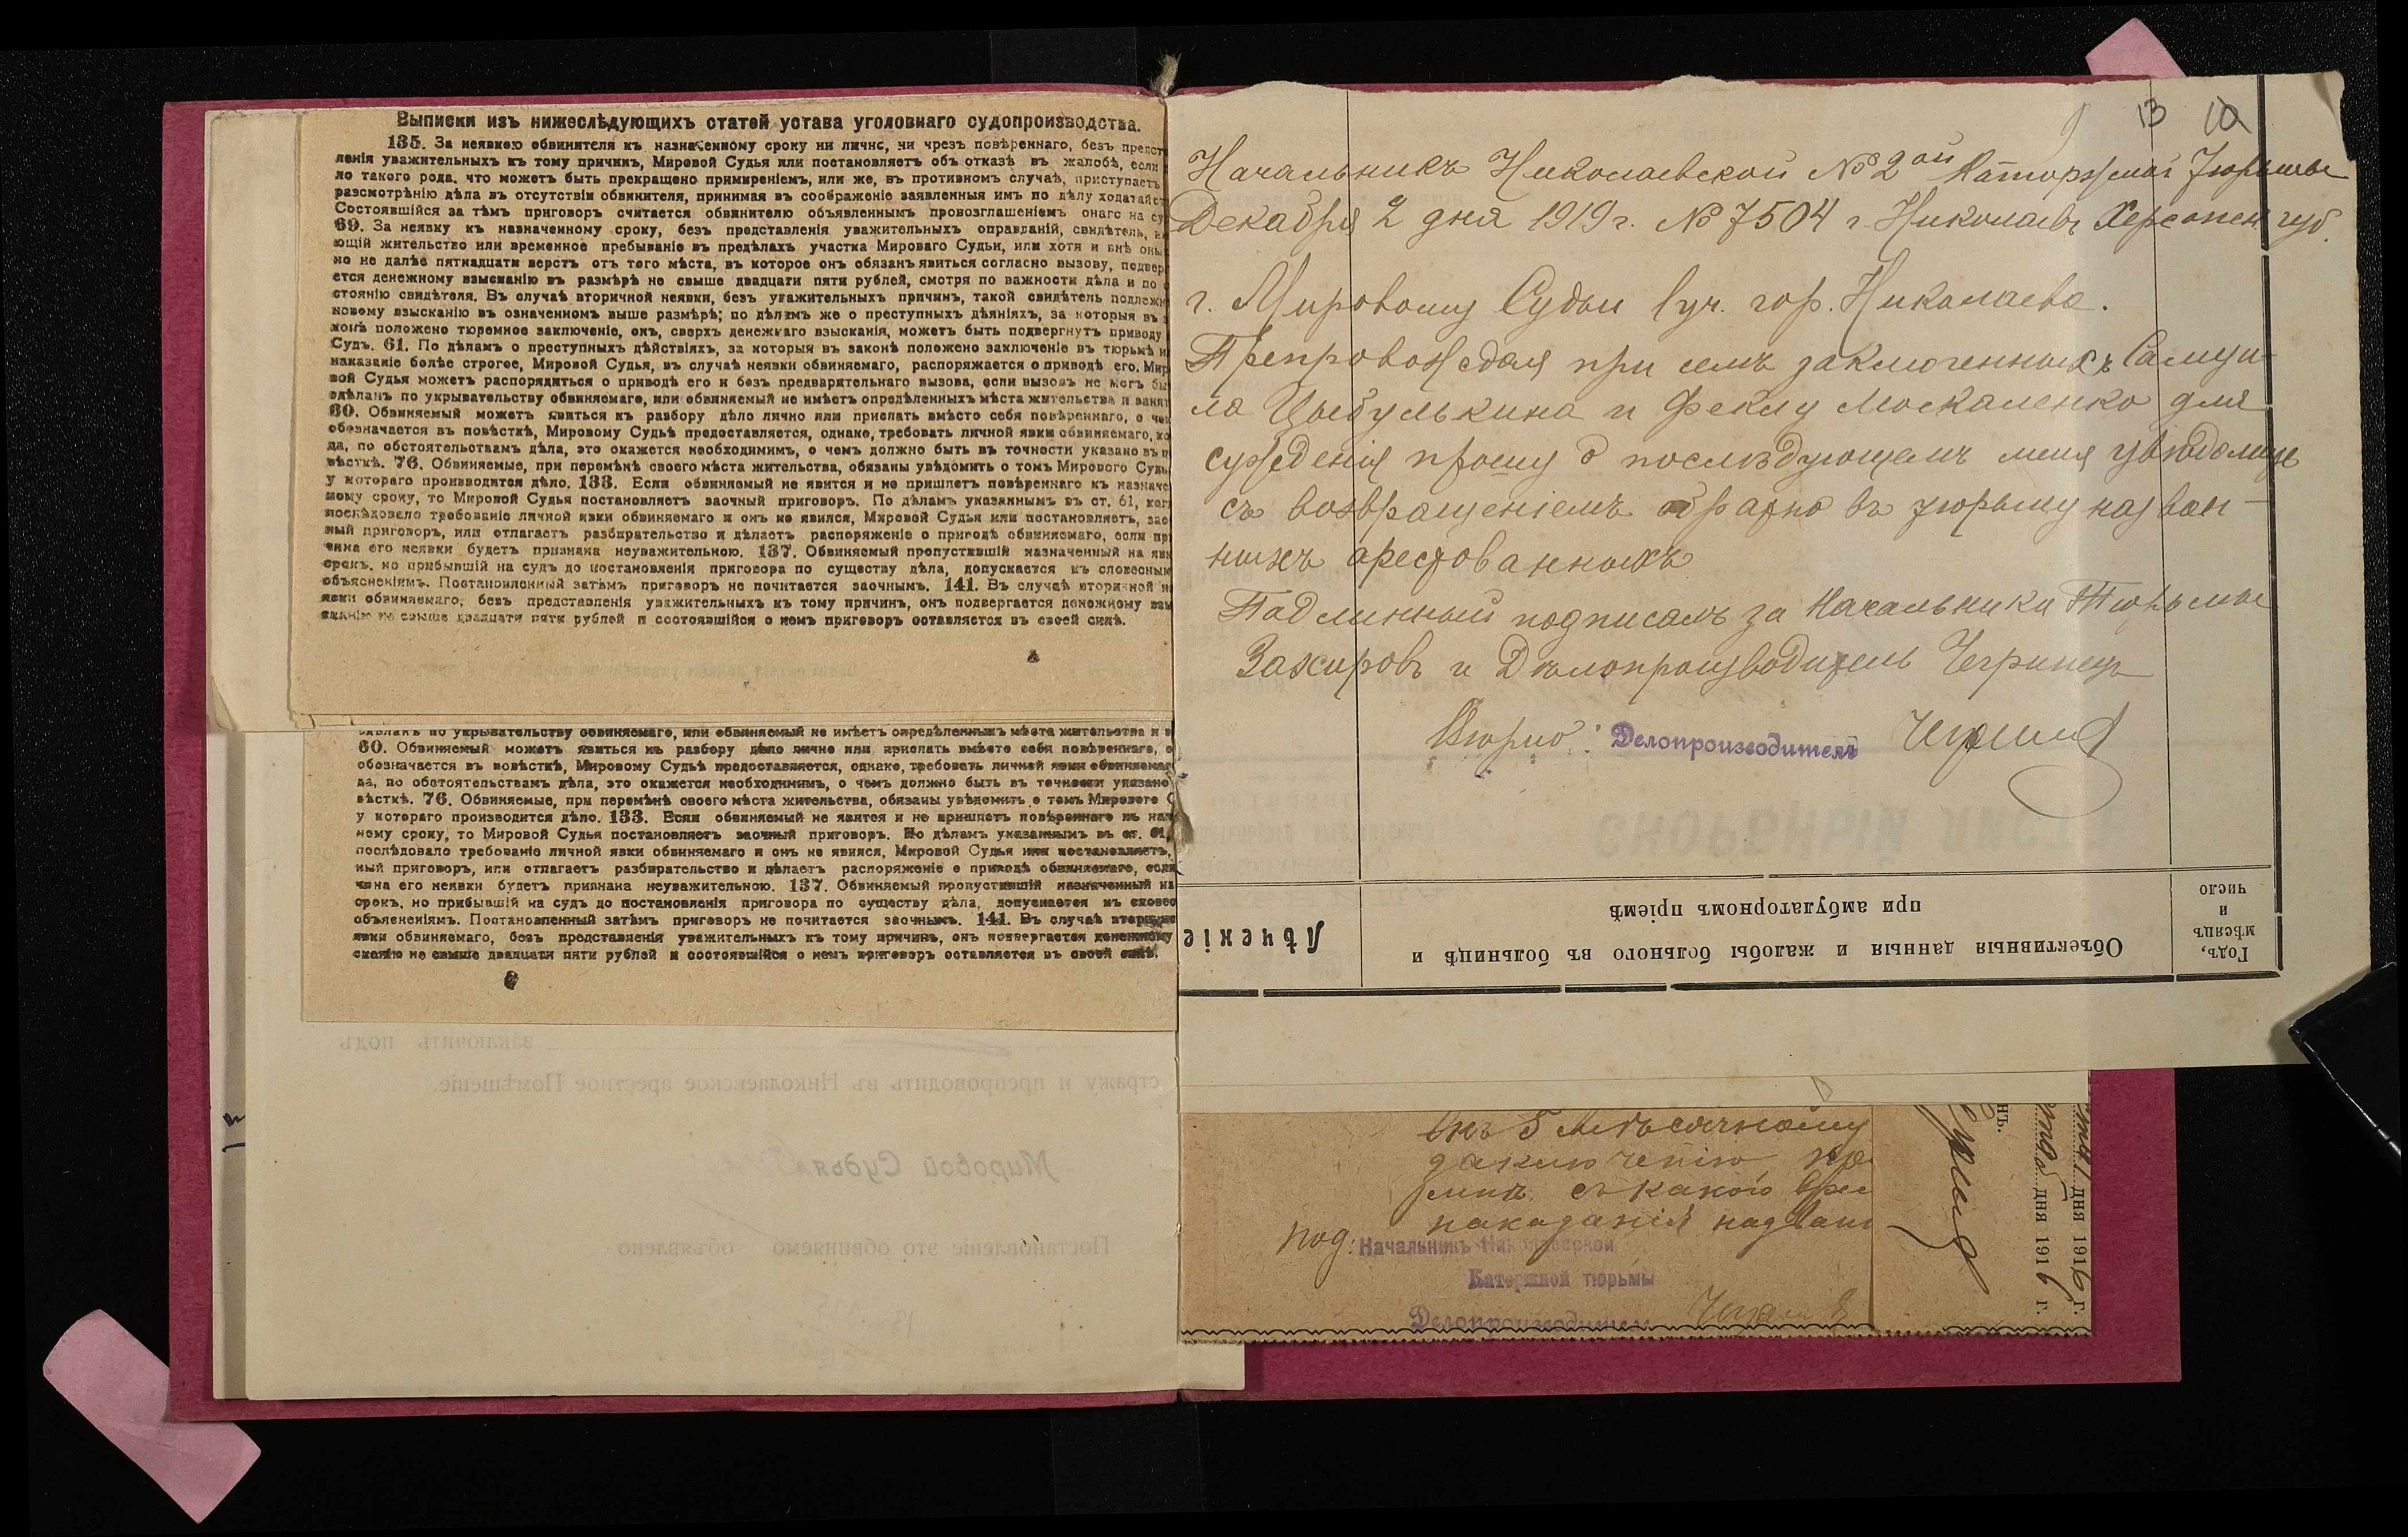 Выписки изъ нижеслѣдующихъ статей устава уголовнаго судопроизводства.
135. За неявкою обвинителя къ назначенному сроку ни лично, ни чрезъ повѣреннаго, безъ предст
ленія уважительныхъ къ тому причинъ, Мировой Судья или постановляетъ объ отказѣ въ жалобѣ, если
ло такого рода, что можетъ быть прекращено примиреніемъ, или же, въ противномъ случаѣ, приступаетъ
разсмотрѣнію дѣла въ отсутствіи обвинителя, принимая въ соображеніе заявленныя имъ по дѣлу ходатайст
Состоявшійся за тѣмъ приговоръ считается обвинителю объявленнымъ провозглашеніемъ онаго на су
69. За неявку къ назначенному сроку, безъ представленія уважительныхъ оправданій, свидѣтель,
ющій жительство или временное пребываніе въ предѣлахъ участка Мироваго Судьи, или хотя и внѣ оны
но не далѣе пятнадцати верстъ отъ того мѣста, въ которое онъ обязанъ явиться согласно вызову, подвер
ется денежному взысканію въ размѣрѣ не свыше двадцати пяти рублей, смотря по важности дѣла и по
стоянію свидѣтеля. Въ случаѣ вторичной неявки, безъ уважительныхъ причинъ, такой свидѣтель подлежи
новому взысканію въ означенномъ выше размѣрѣ; по дѣламъ же о преступныхъ дѣяніяхъ, за которыя въ з
конѣ положено тюремное заключеніе, онъ, сверхъ денежнаго взысканія, можетъ быть подвергнутъ приводу
Судъ. 61. По дѣламъ о преступныхъ дѣйствіяхъ, за которыя въ законѣ положено заключеніе въ тюрьмѣ и
наказаніе болѣе строгое, Мировой Судья, въ случаѣ неявки обвиняемаго, распоряжается о приводѣ его. Мир
вой Судья можетъ распорядиться о приводѣ его и безъ предварительнаго вызова, если вызовъ не могъ бы
сдѣланъ по укрывательству обвиняемаго, или обвиняемый не имѣетъ опредѣленныхъ мѣста жительства и занят
60. Обвиняемый можетъ явиться къ разбору дѣло лично или прислать вмѣсто себя повѣреннаго, о чем
обозначается въ повѣсткѣ, Мировому Судьѣ предоставляется, однако, требовать личной явки обвиняемаго, ко
да, по обстоятельствамъ дѣла, это окажется необходимимъ, о чемъ должно быть въ точности указано въ п
вѣсткѣ. 76. Обвиняемые, при перемѣнѣ своего мѣста жительства, обязаны увѣдомить о томъ Мирового Судь
у котораго производится дѣло. 133. Если обвиняемый не явится и не пришлетъ повѣреннаго къ назначе
ному сроку, то Мировой Судья постановляетъ заочный приговоръ. По дѣламъ указаннымъ въ ст. 61, ког
послѣдовало требованіе личной явки обвиняемаго и онъ не явился, Мировой Судья или постановляетъ, зао
ный приговоръ, или отлагаетъ разбирательство и дѣлаетъ распоряженіе о приводѣ обвиняемаго, если пр
чина его неявки будетъ признана неуважительною. 137. Обвиняемый пропустившій назначенный на явк
срокъ, но прибывшій на судъ до постановленія приговора по существу дѣла, допускается къ словеснымъ
объясненіямъ. Постановленный затѣмъ приговоръ не почитается заочнымъ. 141. Въ случаѣ вторичной не
явки обвиняемаго, безъ представленія уважительныхъ къ тому причинъ, онъ подвергается денежному взы
сканію не свыше двадцати пяти рублей и состоявшійся о немъ приговоръ оставляется въ своей силѣ.
сдѣланъ по укрывательству обвиняемаго, или обвиняемый не имѣетъ опредѣленныхъ мѣста жительства и з
60. Обвиняемый можетъ явиться къ разбору дѣло лично или прислать вмѣсто себя повѣреннаго, о
обозначается въ повѣсткѣ, Мировому Судьѣ предоставляется, однако, требовать личной явки обвиняемаг
да, по обстоятельствамъ дѣла, это окажется необходимимъ, о чемъ должно быть въ точности указано
вѣсткѣ. 76. Обвиняемые, при перемѣнѣ своего мѣста жительства, обязаны увѣдомить о томъ Мирового С
у котораго производится дѣло. 133. Если обвиняемый не явится и не пришлетъ повѣреннаго къ наз
ному сроку, то Мировой Судья постановляетъ заочный приговоръ. По дѣламъ указаннымъ въ ст. 61,
послѣдовало требованіе личной явки обвиняемаго и онъ не явился, Мировой Судья или постановляетъ,
ный приговоръ, или отлагаетъ разбирательство и дѣлаетъ распоряженіе о приводѣ обвиняемаго, если
чина его неявки будетъ признана неуважительною. 137. Обвиняемый пропустившій назначенный на
срокъ, но прибывшій на судъ до постановленія приговора по существу дѣла, допускается къ словес
объясненіямъ. Постановленный затѣмъ приговоръ не почитается заочнымъ. 141. Въ случаѣ вторично
явки обвиняемаго, безъ представленія уважительныхъ къ тому причинъ, онъ подвергается денежному
сканію не свыше двадцати пяти рублей и состоявшійся о немъ приговоръ оставляется въ своей силѣ.
заключить подъ
стражу и препроводить въ Николаевское арестное Помѣщеніе.
Мировой Судья
Постановленіе это обвиняемо объявлено
13 10
Начальникъ Николаевской № 2ой Каторжной Тюрьмы
Декабря 2 дня 1919 г. № 7504 г. Николаевъ Херсонск губ.
г. Мировому Судьи 1 уч. гор. Николаева.
Препровождая при семъ заключенныхъ Самуи-
ла Цыбулькина и Феклу Москаленко для
сужденія прошу о послѣдующемъ меня увѣдомить
съ возвращеніемъ обратно въ тюрьму назван-
ныхъ арестованныхъ
Подлинный подписалъ за Начальника Тюрьмы
Захировъ и Дѣлопроизводитель Чегринецъ
Вѣрно: Делопроизводитель
Годъ, мѣсяцъ и число
Объективныя данныя и жалобы больного въ больницѣ и
при амбулаторномъ пріемѣ
Лѣченіе
5 мѣсячному
заключенію,
съ какого вре
наказанія назван
под: Начальникъ Николаевской
Каторжной тюрьмы
Делопроизводитель
дня 1916 г.
дня 1916 г.